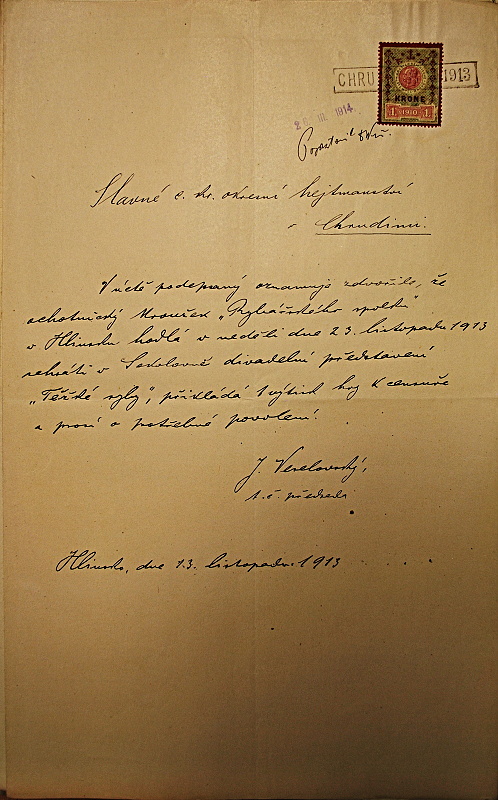 CHRU 1913
KRONE
1 1910 1
III. 1914
Slavné c. kr. okresní hejtmanství
v Chrudimi.
V úctě podepsaný oznamuje zdvořile, že
ochotnický kroužek „Rybářského spolku"
v Hlinsku hodlá v neděli dne 23. listopadu 1913
sehráti v Sokolovně divadelní představení
„Těžké ryby", přikládá 1 výtisk hry k censuře
a prosí o potřebné povolení.
J. Veselovský,
t. č. předseda
Hlinsko, dne 13. listopadu 1913